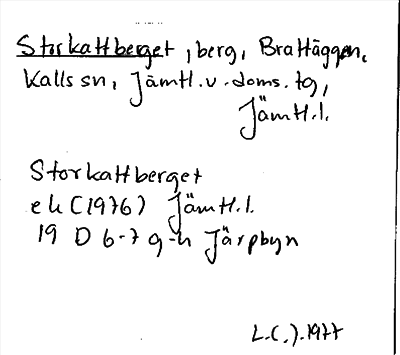 Storkattberget, berg, Brattäggen,
Kalls sn, Jämtl. v. doms. tg,
Jämtl.l.
Storkattberget
ek (1976) Jämtl.l.
19 D 6-7 g-h Järpbyn
L.C.J. 1977